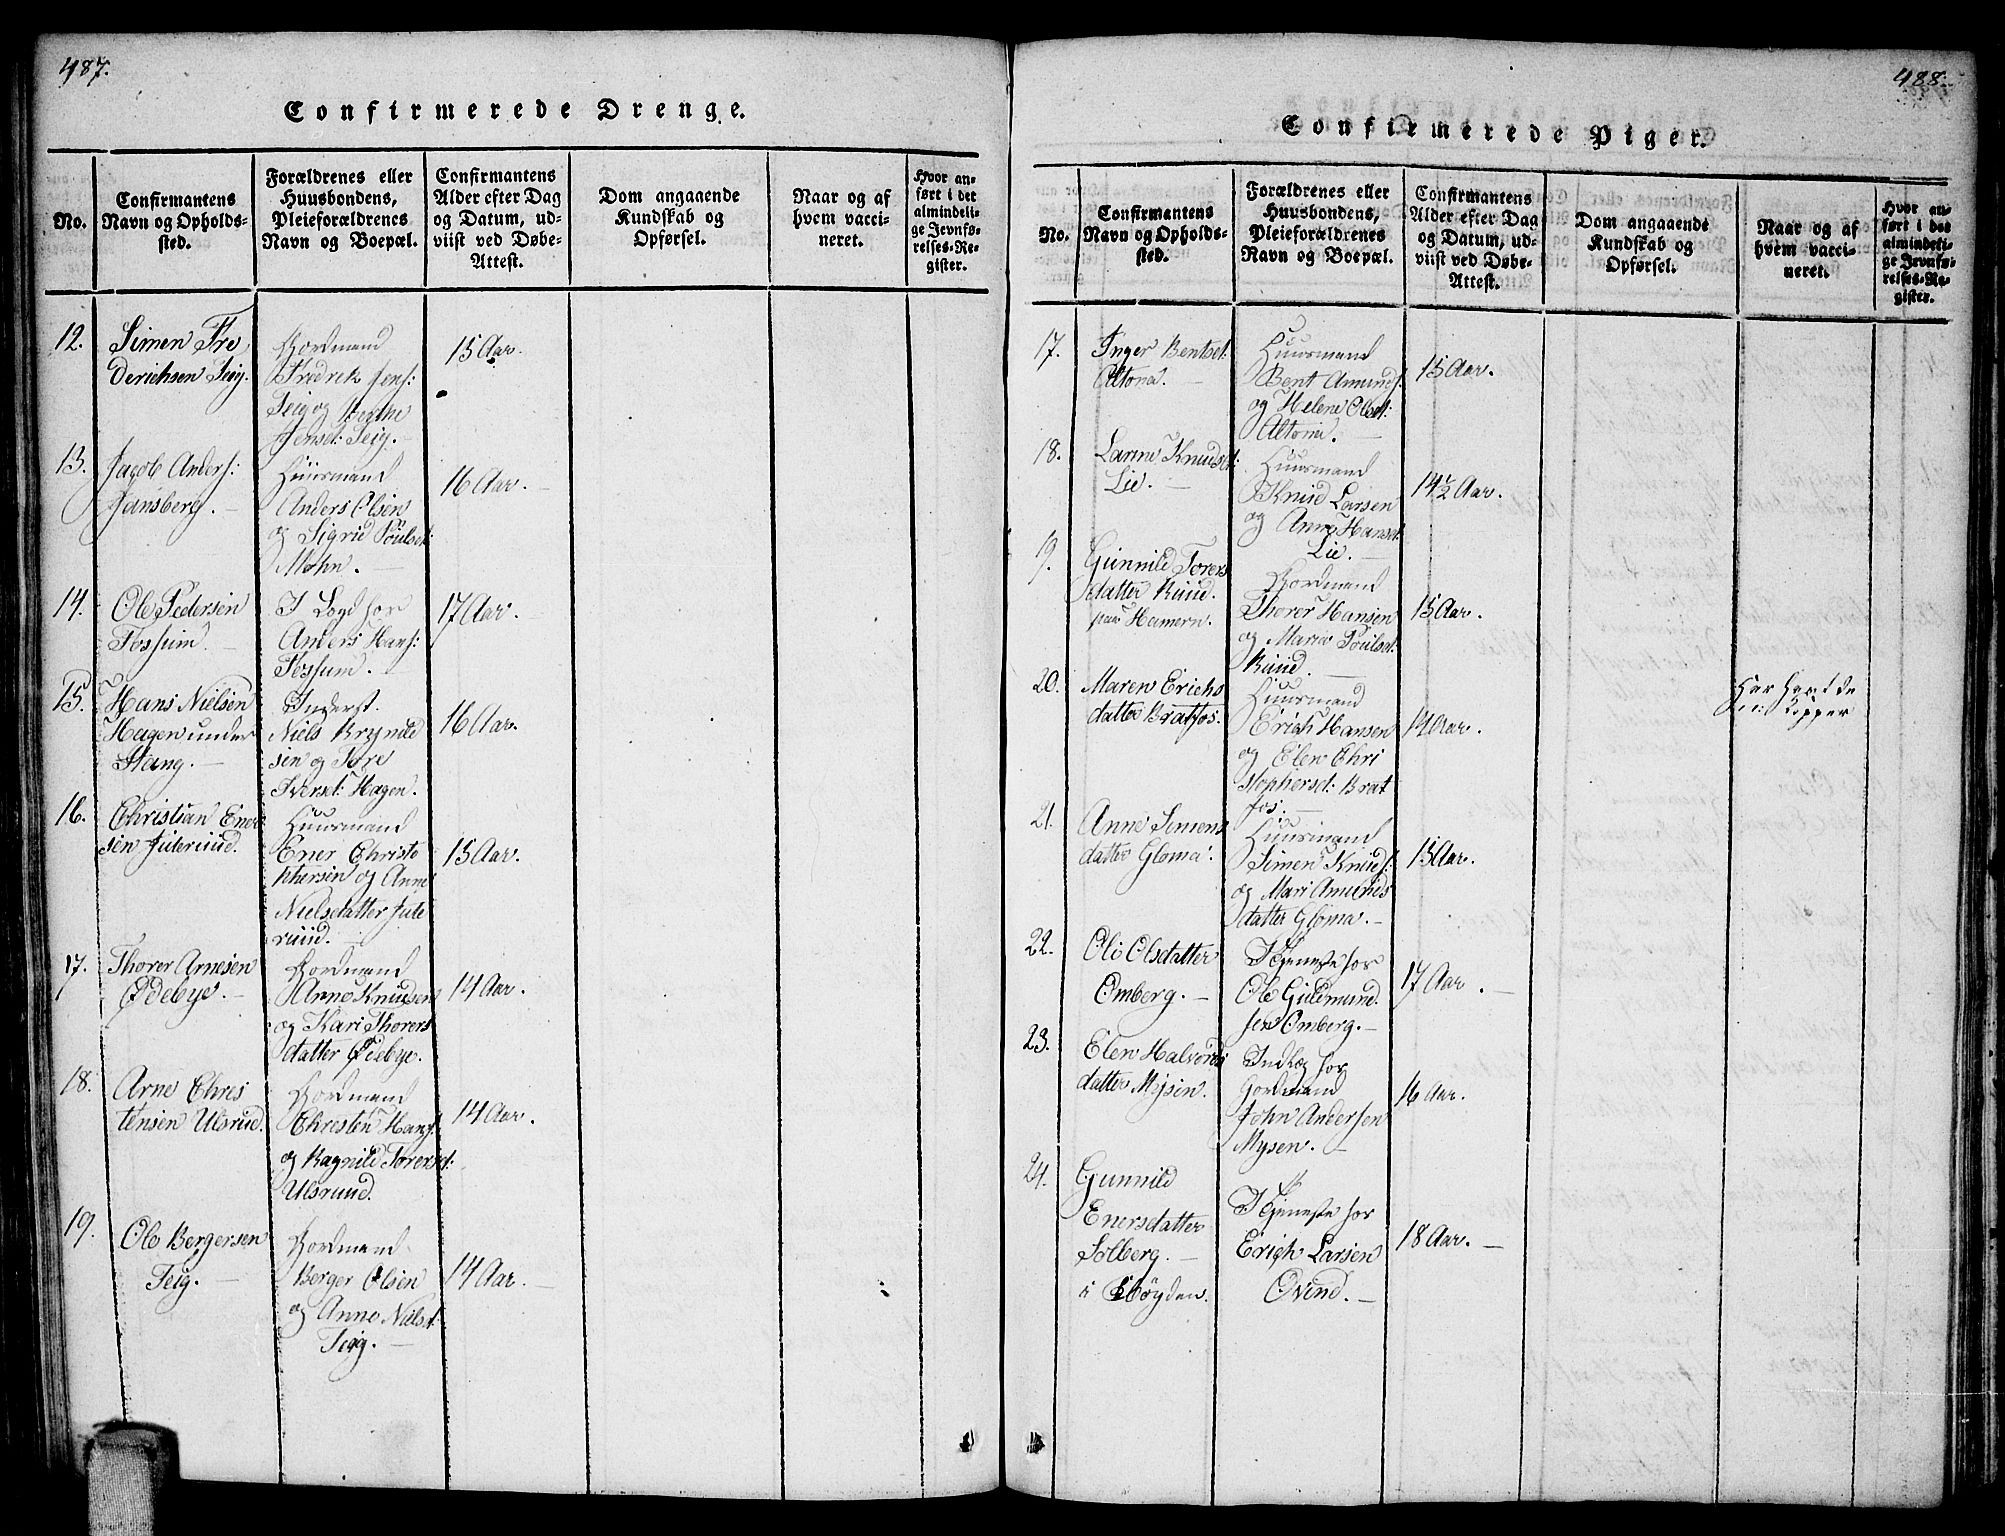 487.
Confirmerede Drenge.
No.
Confirmantens
Navn og Opholds-
sted.
Forældrenes eller
Huusbondens,
Pleieforældrenes
Navn og Boepæl.
Confirmantens
Alder efter Dag
og Datum, ud-
viist ved Døbe-
Attest.
Dom angaaende
Kundskab og
Opførsel.
Naar og af
hvem vacci-
neret.
Hvor an-
ført i det
almindeli-
ge Jevnfø-
relses-Re-
gister.
12.
Simen Fre
derichsen Teig.
Gordmand
Fredrek Jens:
Teig og Berthe
Jensd: Teig.
15 Aar.
13.
Jacob Anders:
Jansberg.
Huusmand
Anders Olsen
og Sigrid Poulsd:
Mohn.
16 Aar.
14.
Ole Pedersen
Fossum.
I Logi hos
Anders Hans:
Fossum.
17 Aar.
15.
Hans Nielsen
Hagen under
Stang.
Inderst.
Niels Brynild
sen og Tore
Iversd: Hagen.
16 Aar.
16.
Christian Ener
sen Julerud.
Huusmand
Ener Christo
phersen og Anne
Nielsdatter Jule
ruud.
15 Aar.
17.
Thorer Arnesen
Ødebye.
Gordmand
Arne Knudsen
og Kari Thorers
datter Ødebye.
14 Aar.
18.
Arne Chres
tensen Ulsrud.
Gordmand
Chresten Hans:
og Ragnild Torersd:
Ulsrund.
14 Aar.
19.
Ole Bergersen
Teig.
Gordmand
Berger Olsen
og Anne Nielsd:
Teig.
14 Aar.
488.
Confirmerede Piger.
No.
Confirmantens
Navn og Opholds-
sted.
Forældrenes eller
Huusbondens,
Pleieforældrenes
Navn og Boepæl.
Confirmantens
Alder efter Dag
og Datum, ud-
viist ved Døbe-
Attest.
Dom angaaende
Kundskab og
Opførsel.
Naar og af
hvem vacci-
neret.
Hvor an-
ført i det
almindeli-
ge Jevnfø-
relses-Re-
gister.
17.
Inger Bentsd:
Altona.
Huusmand
Bent Amunds:
og Helene Olsd:
Altona.
15 Aar.
18.
Larine Knudsd:
Lie.
Huusmand
Knud Larsen
og Anne Hansd:
Lie.
14 1/2 Aar.
19.
Gunnild Torers
datter Ruud.
paa Hamern.
Gordmand
Thorer Hansen
og Maria Poulsd:
Ruud.
15 Aar.
20.
Maren Erichs
datter Bratfos.
Huusmand
Erich Hansen
og Elen Chri
stophersd: Brat
fos.
14 Aar.
Har havt de
Kopper
21.
Anne Simens
datter Gloma.
Huusmand
Simen Knuds:
og Mari Amunds
datter Gloma.
15 Aar.
22.
Oli Olsdatter
Omberg.
I Tjeneste hos
Ole Gulmund
sen Omberg.
17 Aar.
23.
Elen Halvors
datter Mysen.
Indlæg hos
Gordmand
John Andersen
Mysen.
16 Aar.
24.
Gunnild
Enersdatter
Solberg.
i Bøyden.
I Tjeneste hos
Erich Larsen
Ovind.
18 Aar.